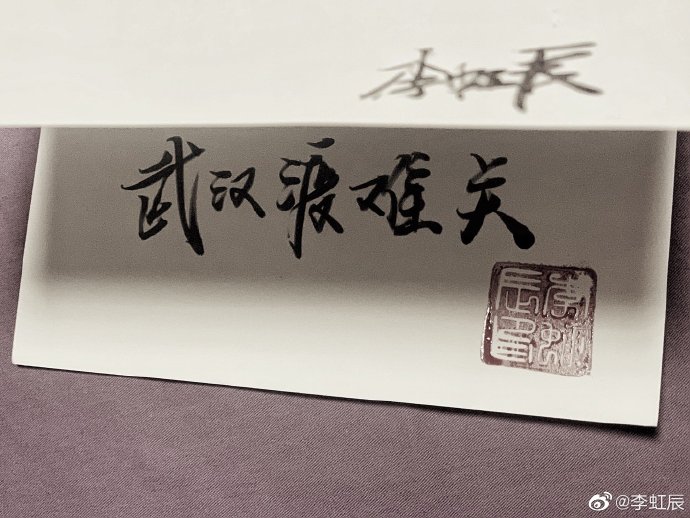 李虹辰
武汉渡难关
李虹辰
@李虹辰